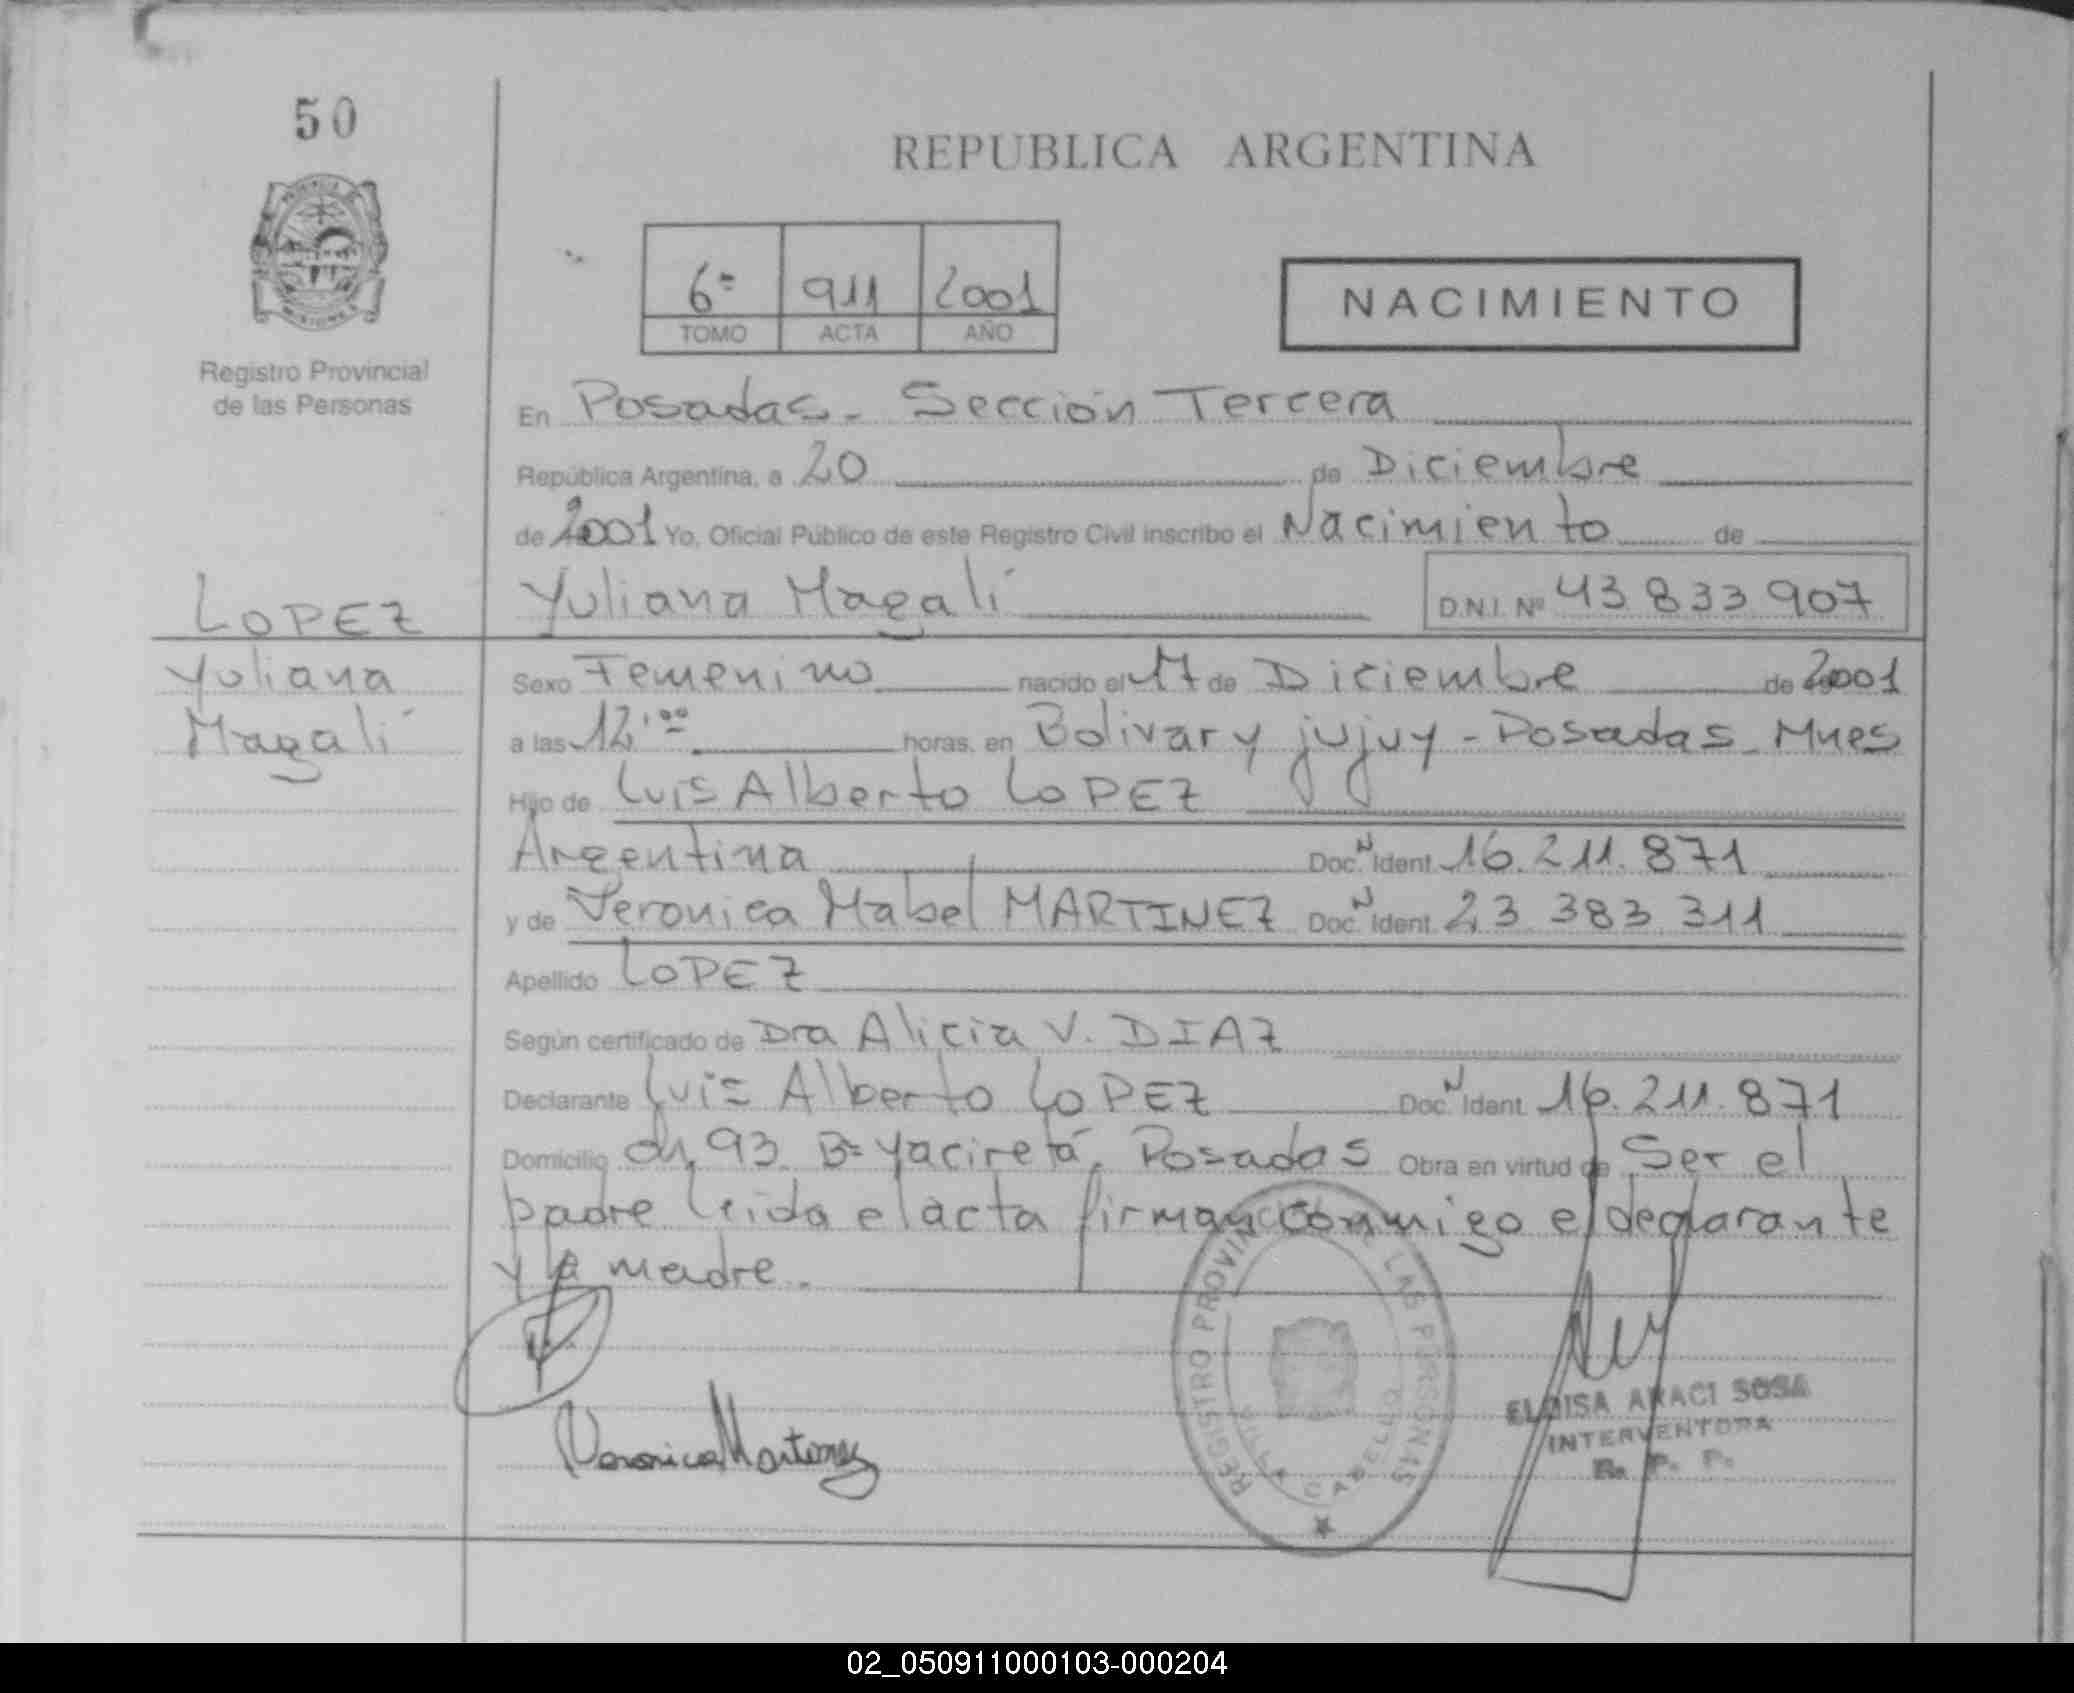 50
REPUBLICA ARGENTINA
6º 911 2001
TOMO ACTA AÑO
NACIMIENTO
Registro Provincial
de las Personas
En Posadas - Sección Tercera
República Argentina, a 20 de Diciembre
de 2001 Yo, Oficial Público de este Registro Civil inscribo el Nacimiento de
LOPEZ
Yuliana Magalí D.N.I. Nº 43 833 907
Yuliana
Magalí
Sexo Femenino nacido el 17 de Diciembre de 2001
a las 12,00 horas, en Bolivar y jujuy - Posadas - Mnes
Hijo de Luis Alberto LOPEZ
Argentina Doc. N Ident. 16.211.871
y de Veronica Mabel MARTINEZ Doc. N Ident. 23 383 311
Apellido LOPEZ
Según certificado de Dra Alicia V. DIAZ
Declarante Luis Alberto LOPEZ Doc. N Ident. 16.211.871
Domicilio Ch. 93 Bº Yaciretá, Posadas Obra en virtud de Ser el
padre leida el acta firman conmigo el declarante
y la madre.
Veronica Martinez
REGISTRO PROVINCIAL DE LAS PERSONAS
CABELLO
ELOISA ARACI SOSA
INTERVENTORA
R. P. P.
02_050911000103-000204